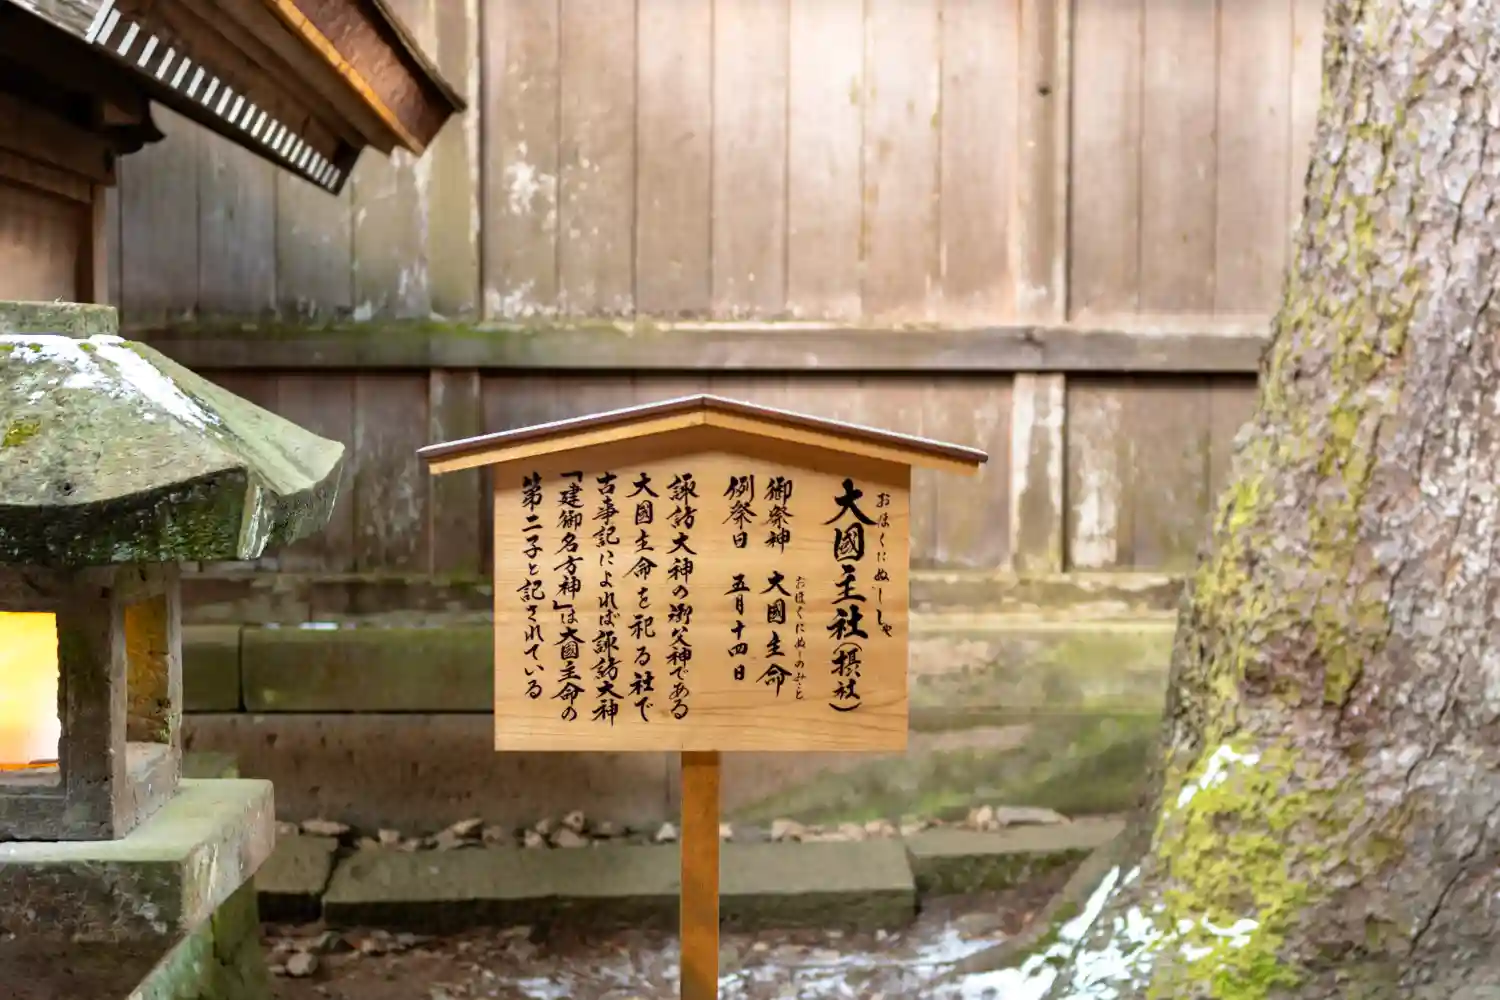 大國主社（摂社）
おほくにぬししゃ
御祭神　大國主命
おほくにぬしのみこと
例祭日　五月十四日
諏訪大神の御父神である
大國主命を祀る社で
古事記によれば諏訪大神
「建御名方神」は大國主命の
第二子と記されている